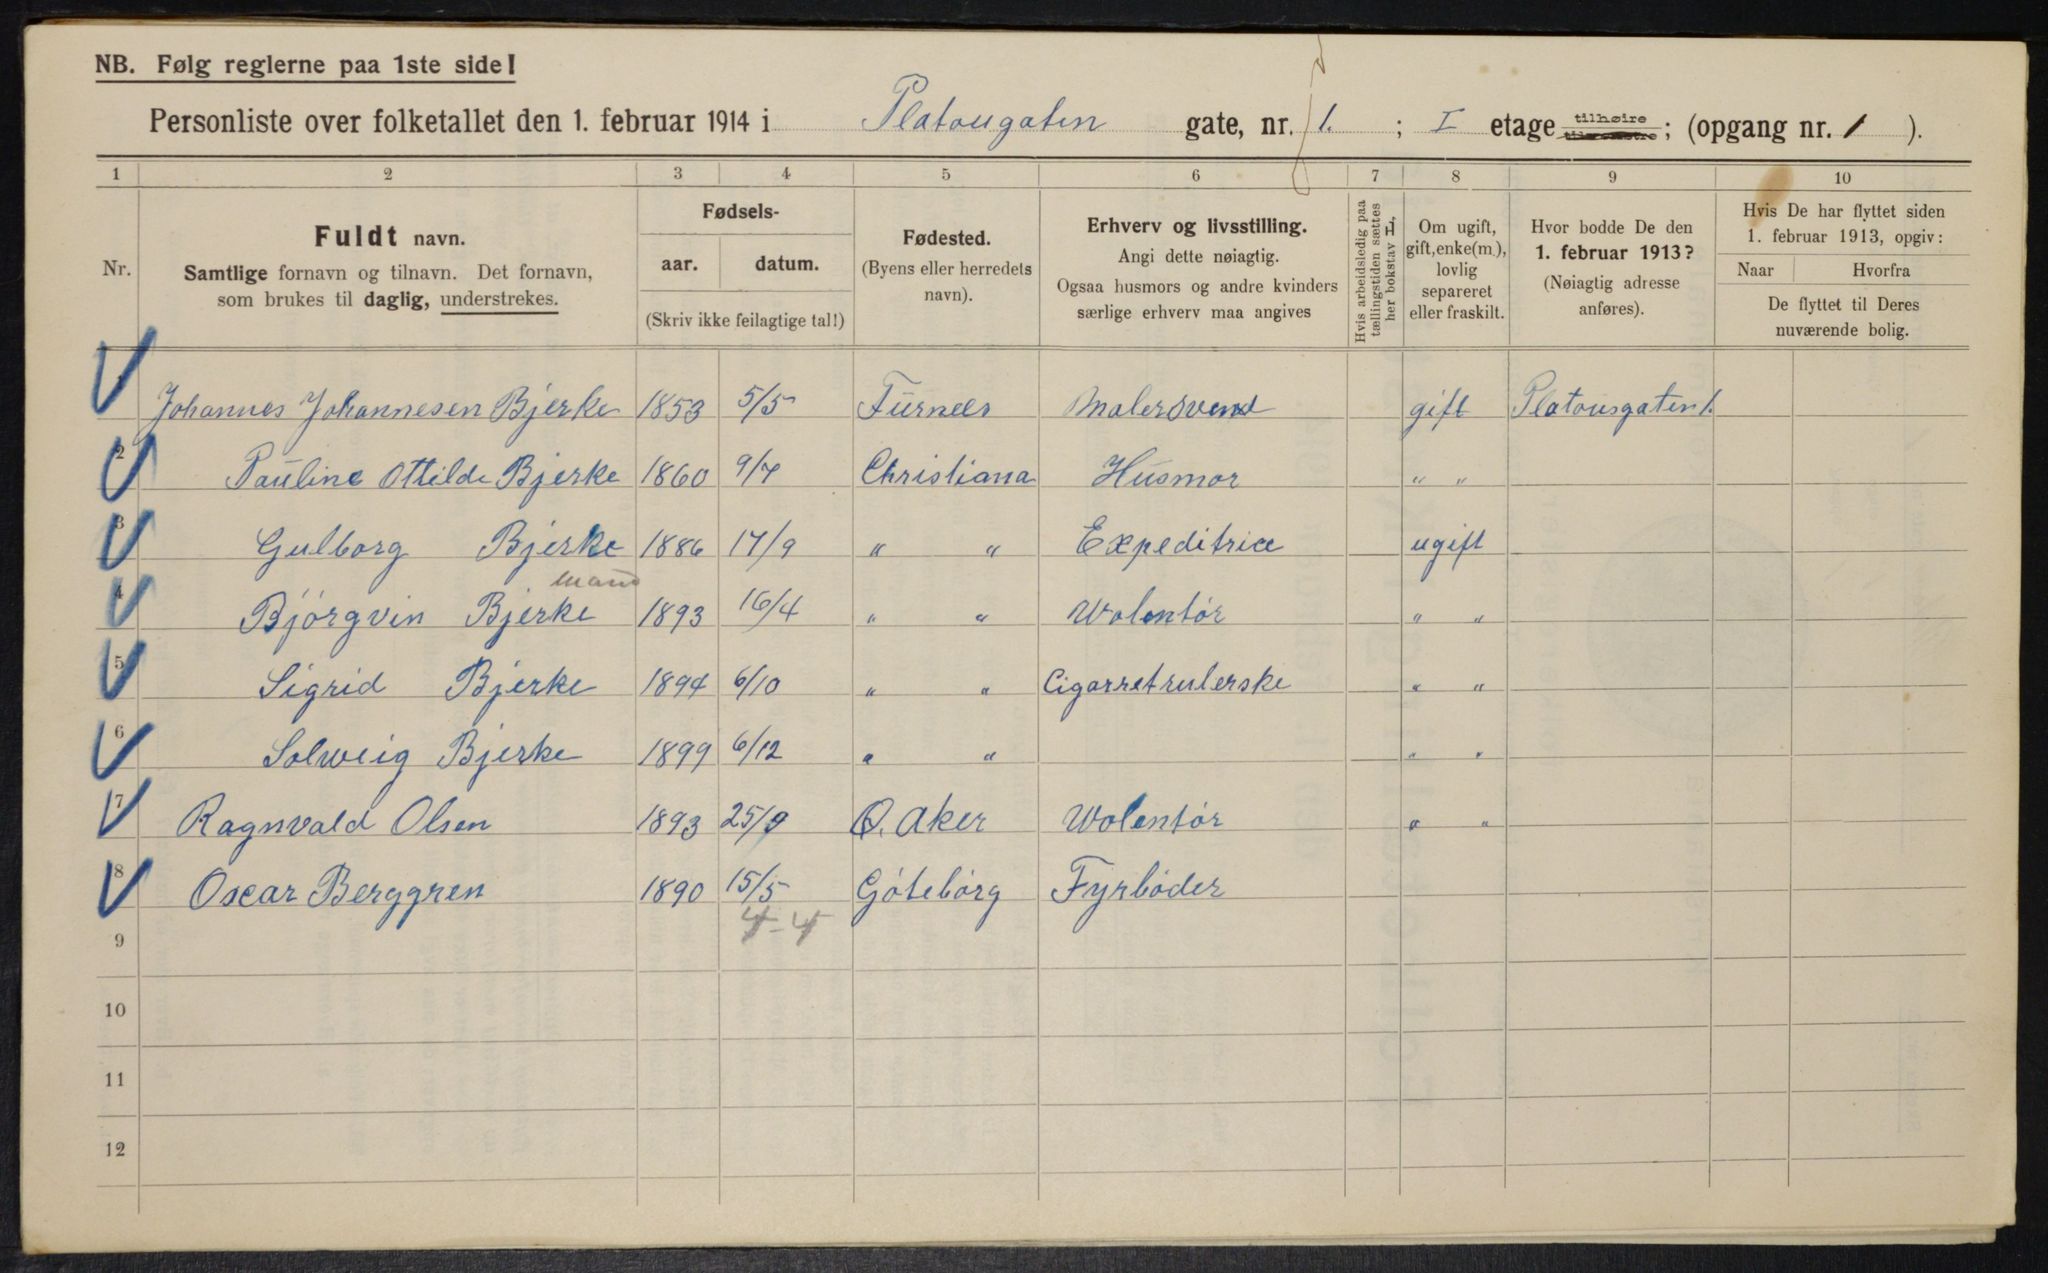 NB. Følg reglerne paa 1ste side!
Personliste over folketallet den 1. februar 1914 i Platougaten gate, nr. 1. ; I etage tilhøire ; (opgang nr. 1 ).
1 2 3 4 5 6 7 8 9 10
Nr.
Fuldt navn.
Samtlige fornavn og tilnavn. Det fornavn,
som brukes til daglig, understrekes.
Fødsels-
aar. datum.
(Skriv ikke feilagtige tal!)
Fødested.
(Byens eller herredets
navn).
Erhverv og livsstilling.
Angi dette nøiagtig.
Ogsaa husmors og andre kvinders
særlige erhverv maa angives
Hvis arbeidsledig paa
tællingstiden sættes
her bokstav L,
Om ugift,
gift, enke(m.),
lovlig
separeret
eller fraskilt.
Hvor bodde De den
1. februar 1913?
(Nøiagtig adresse
anføres).
Hvis De har flyttet siden
1. februar 1913, opgiv:
Naar Hvorfra
De flyttet til Deres
nuværende bolig.
1 Johannes Johannesen Bjerke 1853 5/5 Furnees Malersvend gift Platousgaten 1.
2 Pauline Ottilde Bjerke 1860 9/7 Christiana Husmor " "
3 Gulborg Bjerke 1886 17/9 " " Expeditrice ugift
mand
4 Bjórgvin Bjerke 1893 16/4 " " Wolentór " "
5 Sigrid Bjerke 1894 6/10 " " Cigarretrulerske " "
6 Solweig Bjerke 1899 6/12 " " " "
7 Ragnvald Olsen 1893 25/9 Ø. Aker Wolentór " "
8 Oscar Berggren 1890 15/5 Góteborg Fyrbóder
4-4
9
10
11
12